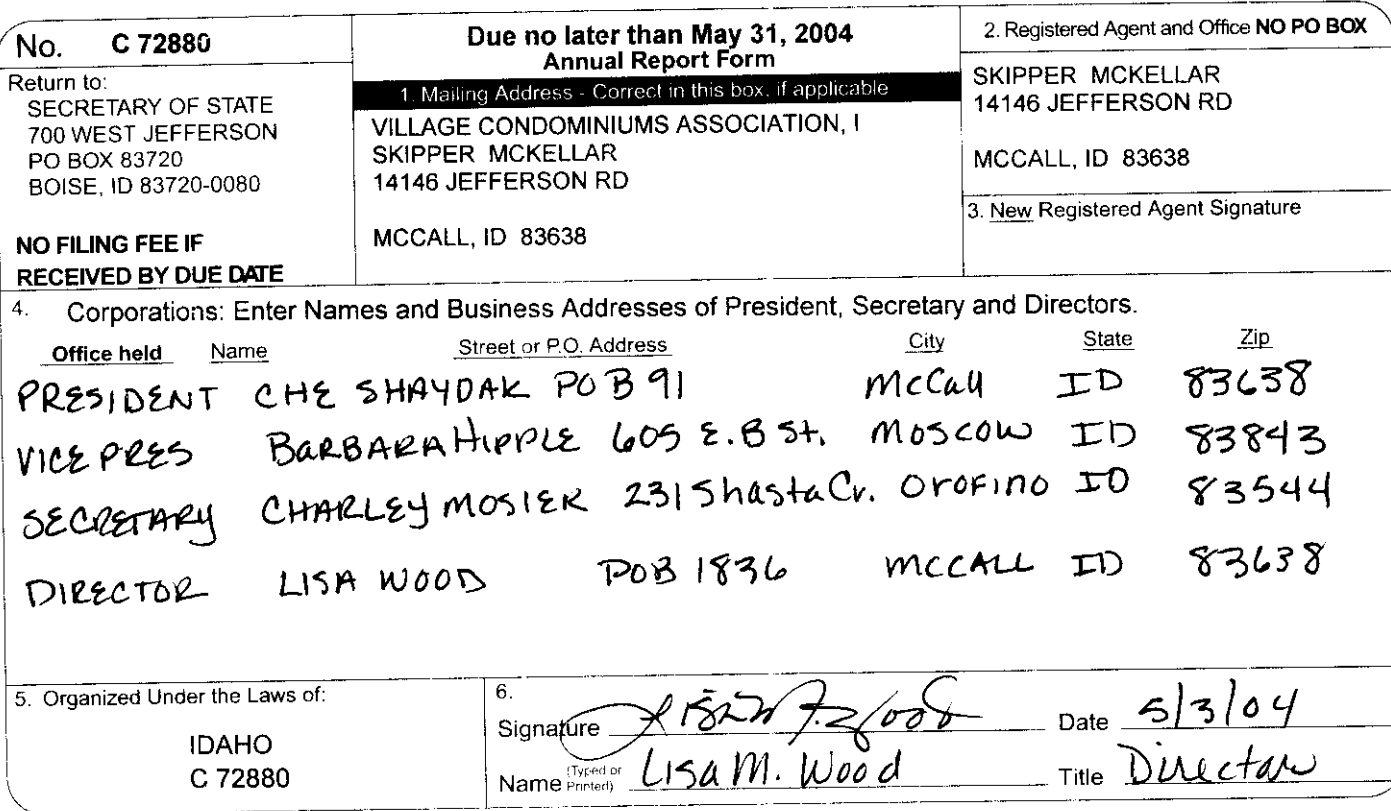 No. C 72880
Return to:
SECRETARY OF STATE
700 WEST JEFFERSON
PO BOX 83720
BOISE, ID 83720-0080
NO FILING FEE IF
RECEIVED BY DUE DATE
Due no later than May 31, 2004
Annual Report Form
1. Mailing Address - Correct in this box, if applicable
VILLAGE CONDOMINIUMS ASSOCIATION, I
SKIPPER MCKELLAR
14146 JEFFERSON RD
MCCALL, ID 83638
2. Registered Agent and Office NO PO BOX
SKIPPER MCKELLAR
14146 JEFFERSON RD
MCCALL, ID 83638
3. New Registered Agent Signature
4. Corporations: Enter Names and Business Addresses of President, Secretary and Directors.
Office held Name Street or P.O. Address City State Zip
PRESIDENT CHE SHAYDAK POB 91 McCall ID 83638
VICE PRES BARBARA HIPPLE 605 E. B St. MOSCOW ID 83843
SECRETARY CHARLEY MOSIER 231 Shasta Cr. OROFINO ID 83544
DIRECTOR LISA WOOD POB 1836 MCCALL ID 83638
5. Organized Under the Laws of:
IDAHO
C 72880
6.
Signature Date 5/3/04
Name (Typed or Printed) Lisa M. Wood Title Director